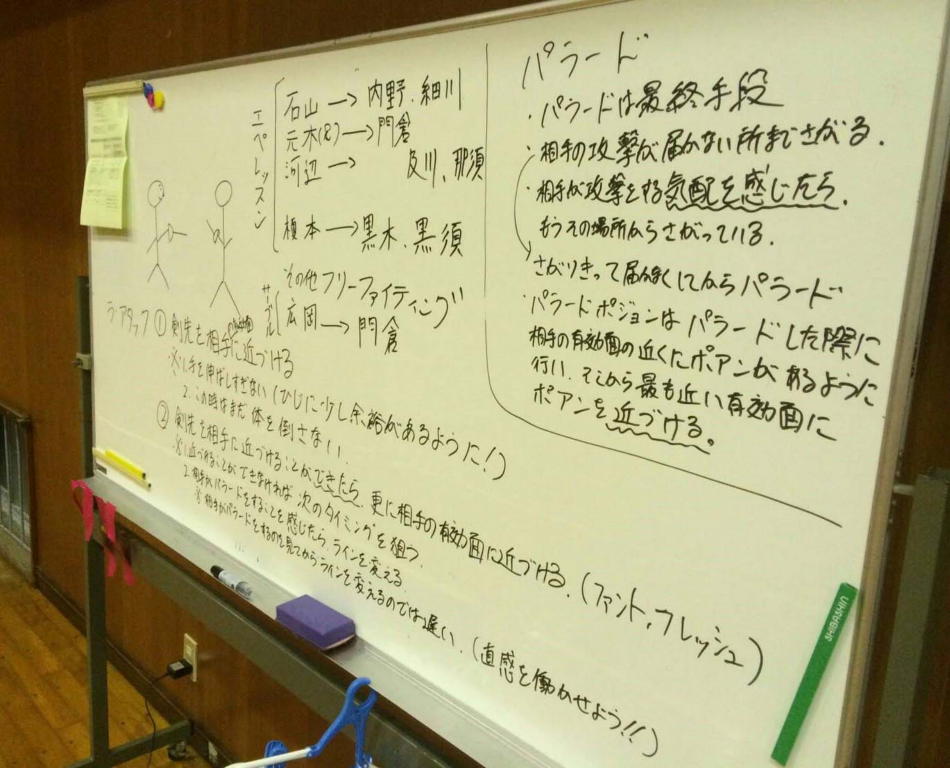 エペレッスン
石山→内野、細川
元木(R)→門倉
河辺→及川、那須
榎本→黒木、黒須
その他フリーファイティング
サーブル
広岡→門倉
ラ・アタック
① 剣先を相手に近づける
※1.手を伸ばしすぎない(ひじに少し余裕があるように!)
2.この時はまだ体を倒さない.
② 剣先を相手に近づけることができたら、更に相手の有効面に近づける.(ファント,フレッシュ)
※1.近づけることができなければ次のタイミングを狙う.
2.相手がパラードをすることを感じたら、ラインを変える
※相手がパラードをするのを見てからラインを変えるのでは遅い.(直感を働かせよう!!)
パラード
・パラードは最終手段
・相手の攻撃が届かない所までさがる.
・相手が攻撃をする気配を感じたら、
もうその場所からさがっている.
さがりきって届かなくしてからパラード
・パラードポジションはパラードした際に
相手の有効面の近くにポアンがあるように
行い、そこから最も近い有効面に
ポアンを近づける。
SHIBASHIN